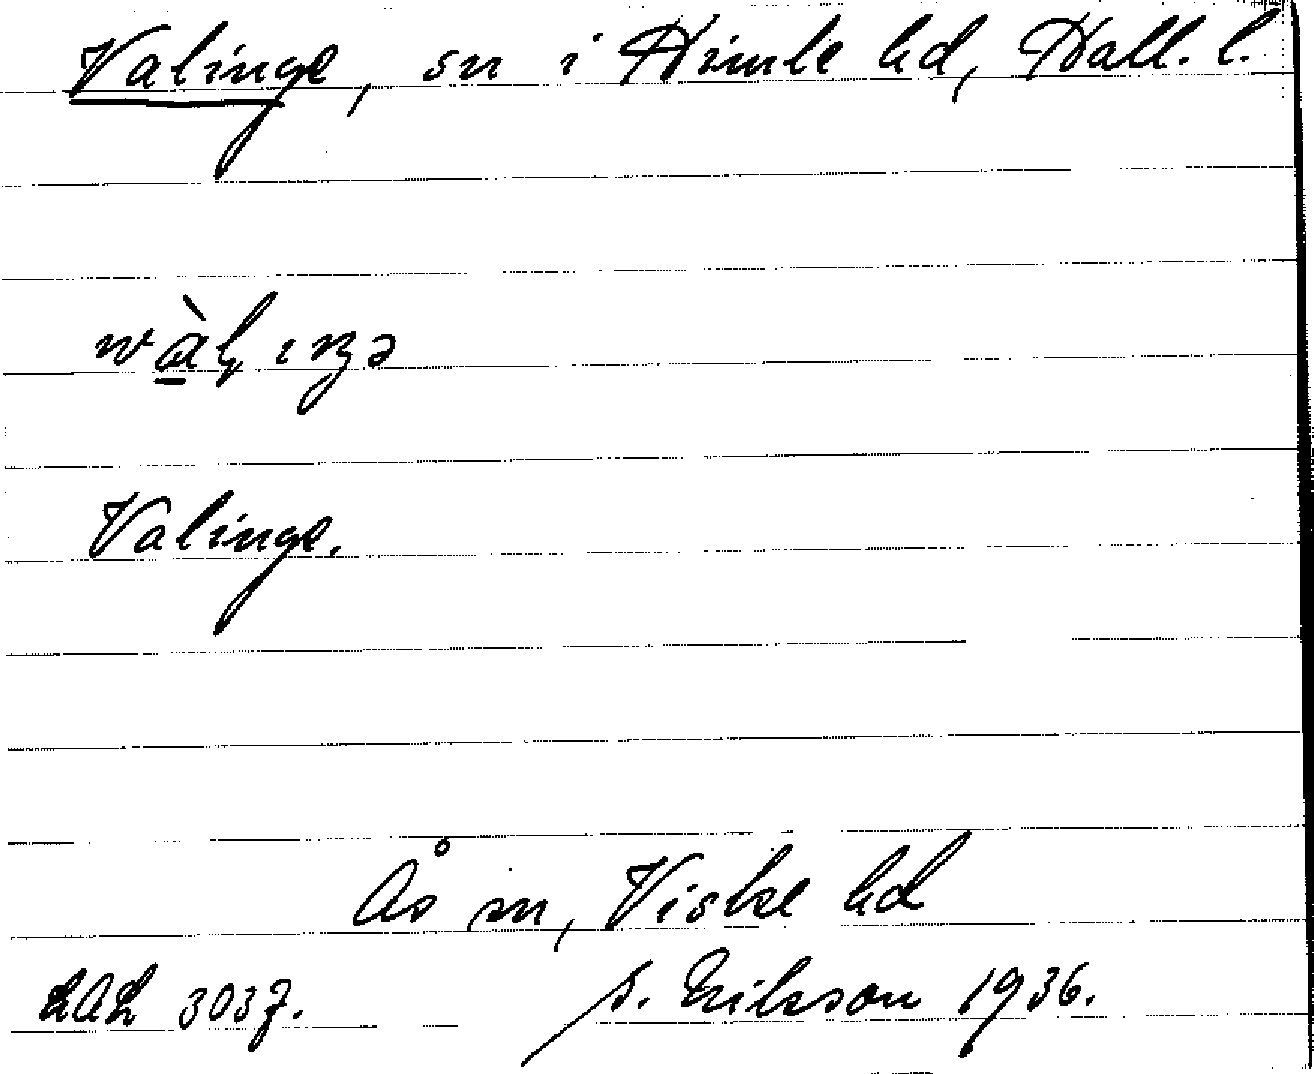 Valinge, sn i Himle hd, Hall. l.
Valinge.
Ås sn, Viske hd
LAL 3037. S. Erikson 1936.